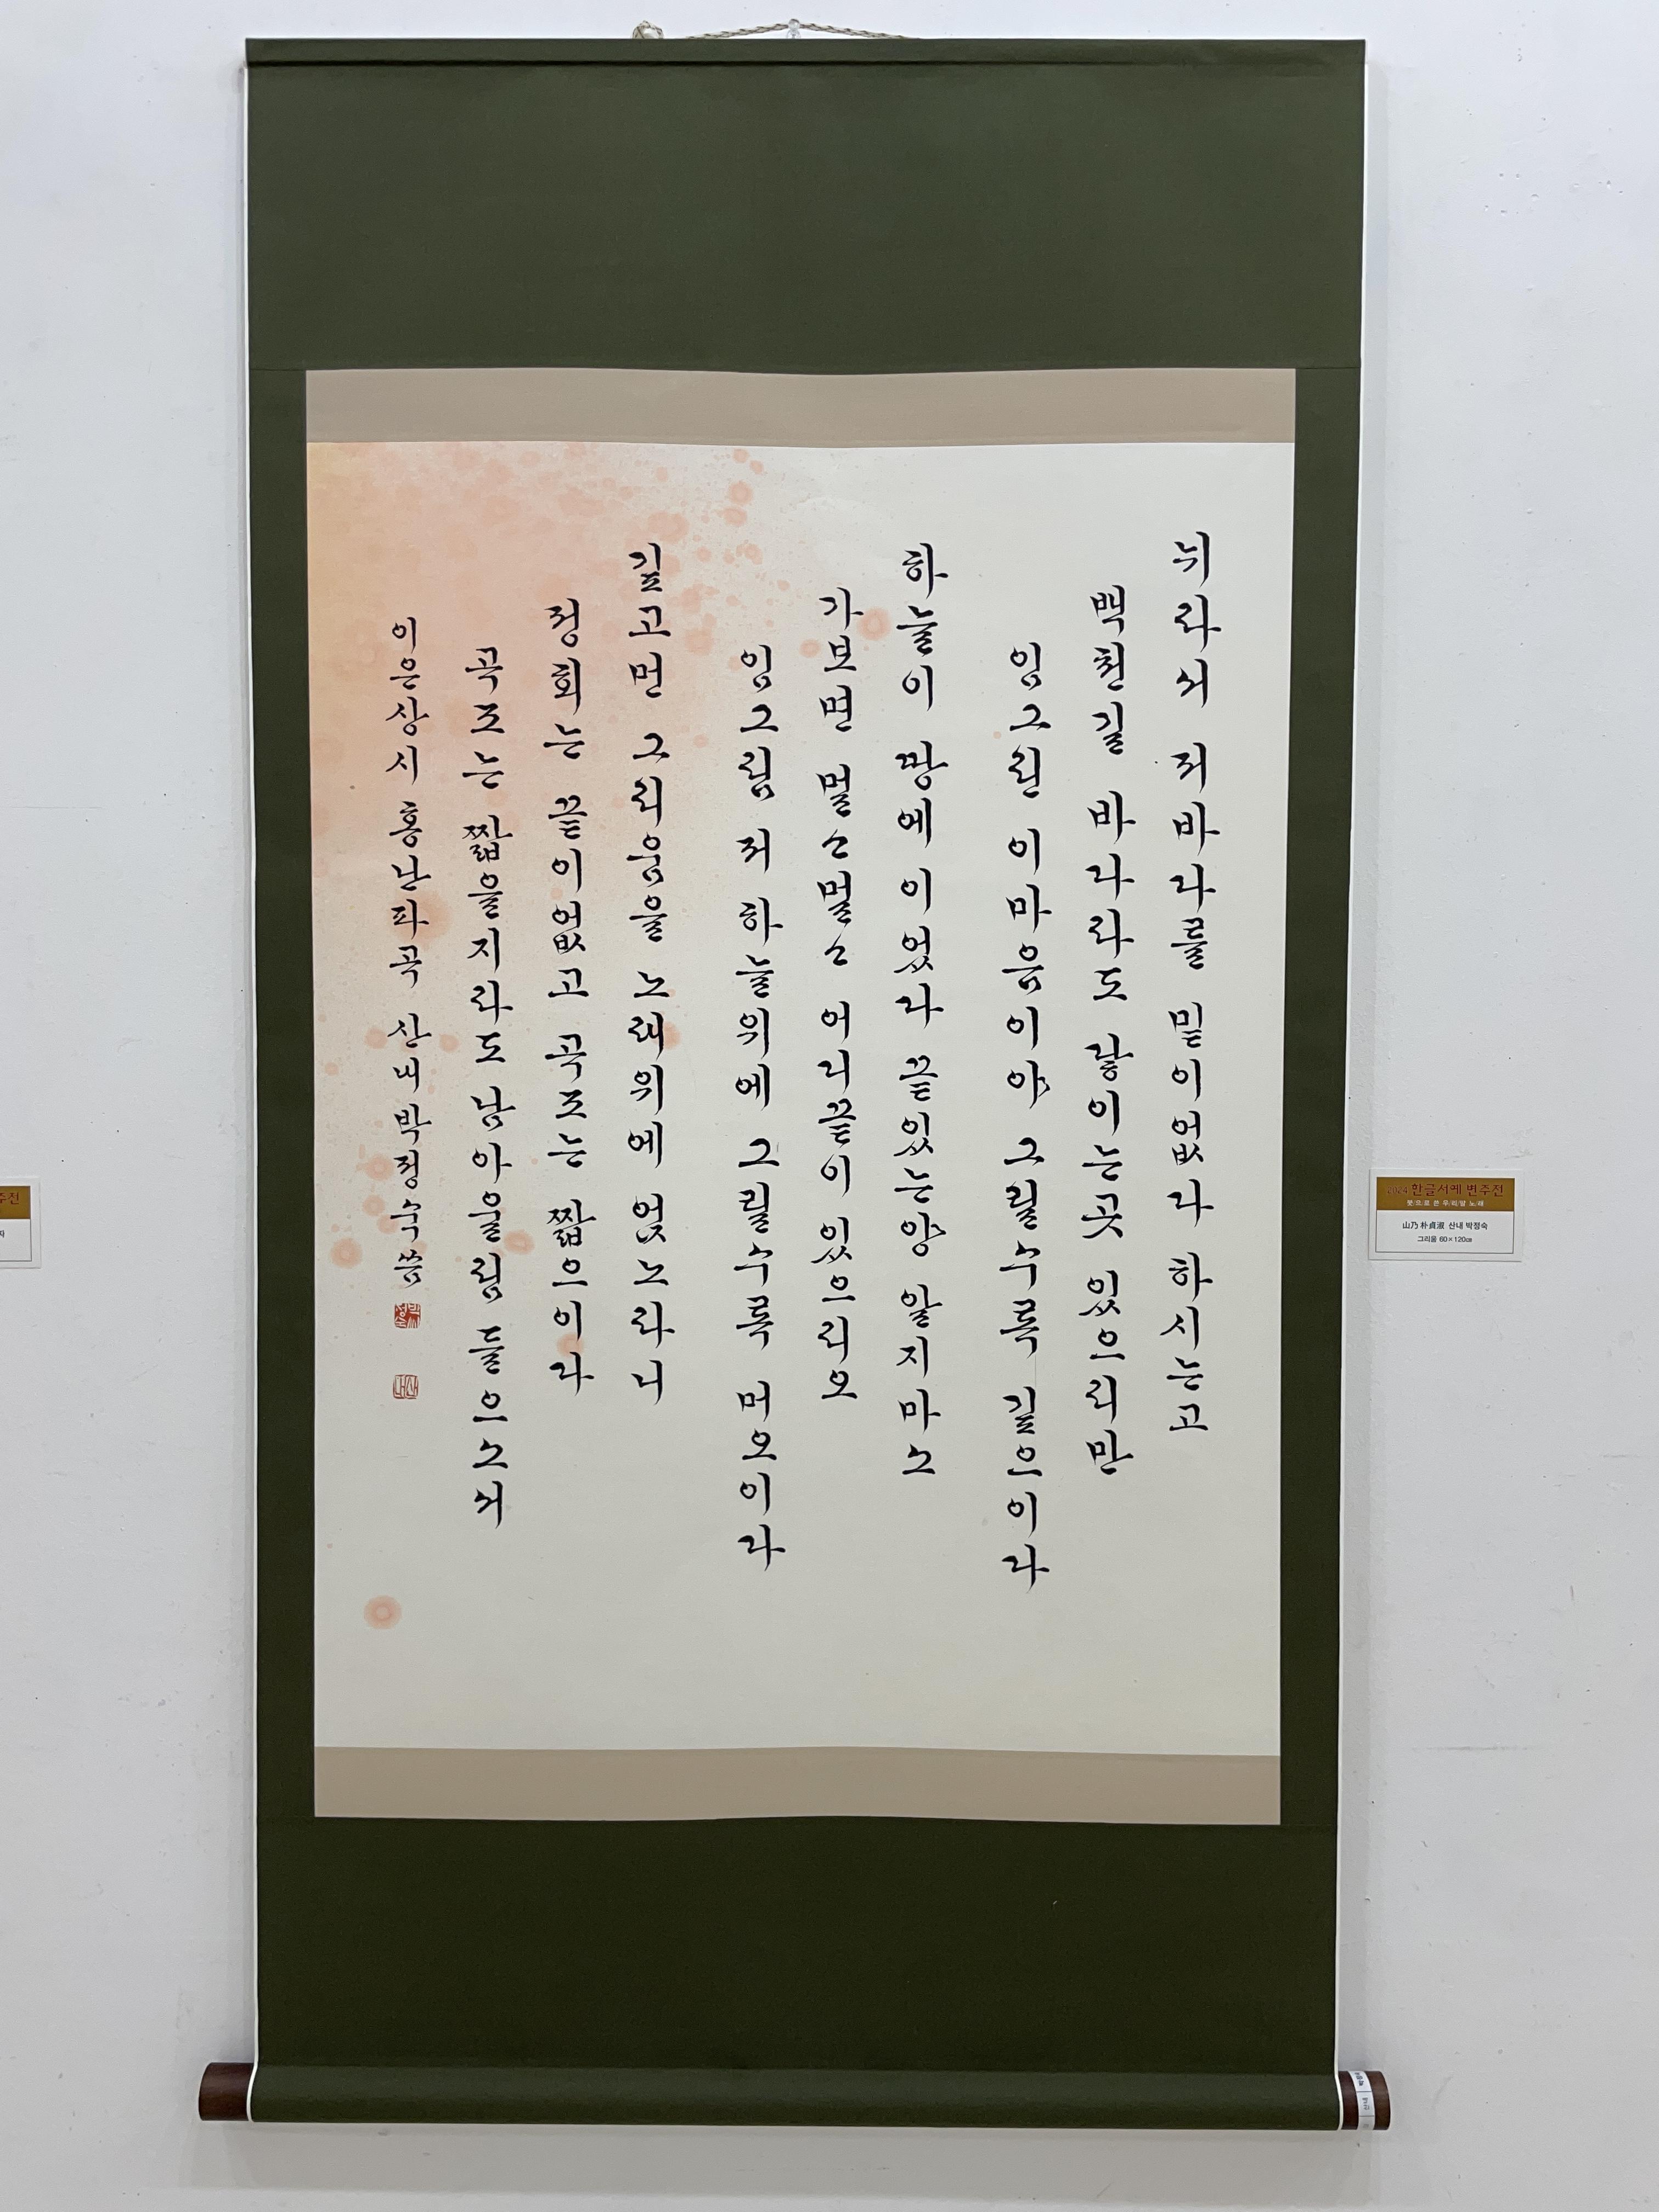 뉘라서 저바다를 밑이없다 하시는고
백천길 바다라도 닿이는곳 있으리만
임그린 이마음이야 그릴수록 깊으이다
하늘이 땅에이었다 끝있는양 알지마소
가보면 멀ㅅ멀ㅅ 어디끝이 있으리오
임그림 저하늘위에 그릴수록 머오이다
깊고먼 그리움을 노래위에 얹노라니
정회는 끝이없고 곡조는 짧으이다
곡조는 짧을지라도 남아울림 들으소서
이은상시 홍난파곡 산내박정숙씀
2024 한글서예 변주전
붓으로 쓴 우리말 노래
山乃 朴貞淑 산내 박정숙
그리움 60×120㎝